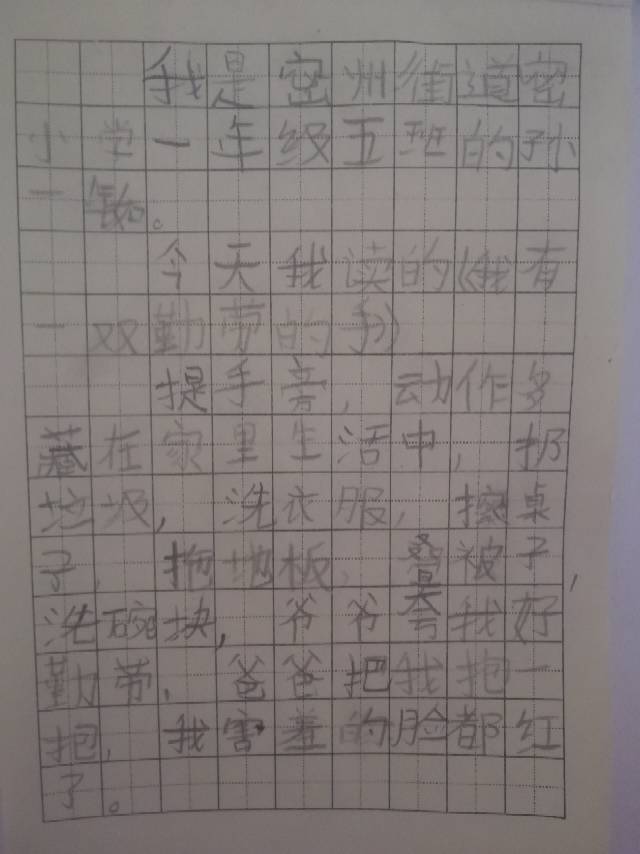 我是密州街道密
小学一年级五班的孙
一铭。
今天我读的《我有
一双勤劳的手》
提手旁，动作多
藏在家里生活中，扔
垃圾，洗衣服，擦桌
子，拖地板，叠被子，
洗碗块，爷爷夸我好
勤劳，爸爸把我抱一
抱，我害羞的脸都红
了。